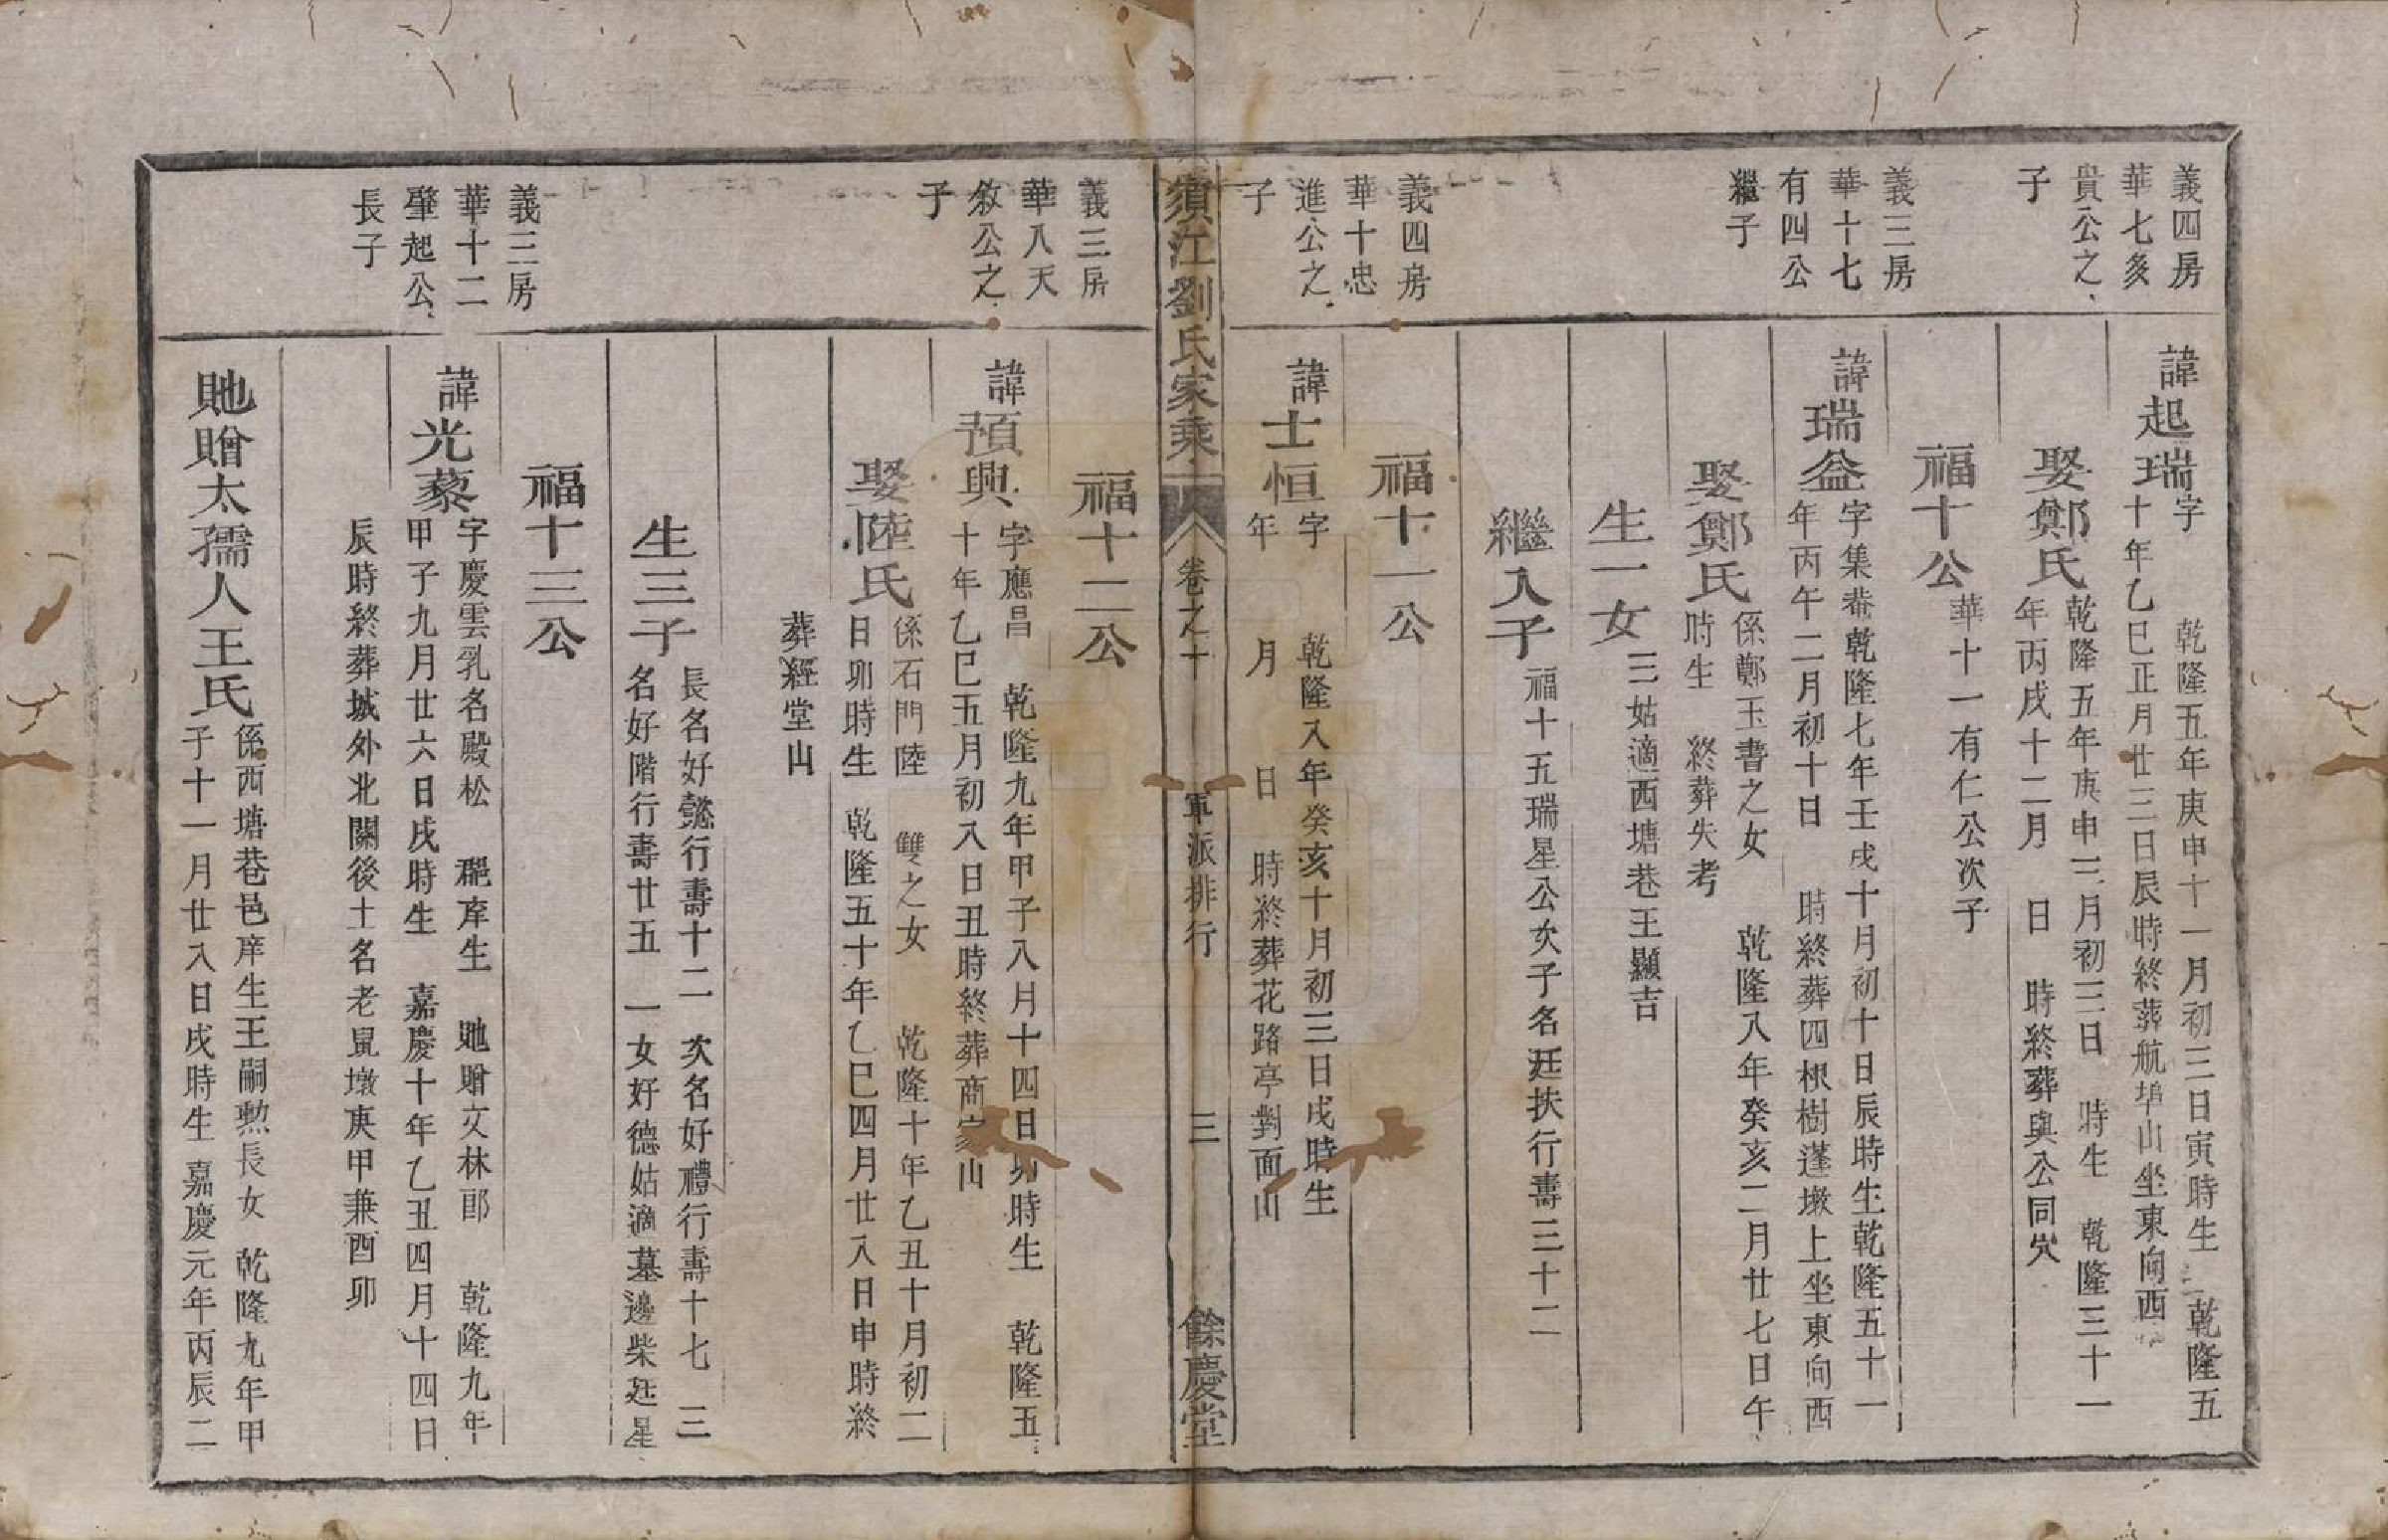 義四房
華七㒸
貴公之
子
諱起瑞字　乾隆五年庚申十一月初三日寅時生　乾隆五
十年乙巳正月廿三日辰時終葬航埠山坐東向西
娶鄭氏乾隆五年庚申三月初三日　時生　乾隆三十一
年丙戌十二月　日　時終葬與公同穴
福十公華十一有仁公次子
義三房
華十七
有四公
繼子
諱瑞益字集菴乾隆七年壬戌十月初十日辰時生乾隆五十一
年丙午二月初十日　時終葬四根樹蓬墩上坐東向西
娶鄭氏係鄭玉書之女　乾隆八年癸亥二月廿七日午
時生　終葬失考
生一女三姑適西塘巷王顯吉
繼入子福十五瑞星公次子名廷扶行壽三十二
福十一公
義四房
華十忠
進公之
子
諱士恒字　乾隆八年癸亥十月初三日戌時生
年　月　日　時終葬花路亭對面山
須江劉氏家乘
卷之十
軍派排行
三
餘慶堂
福十二公
義三房
華八天
敘公之
子
諱預興字應昌　乾隆九年甲子八月十四日卯時生　乾隆五
十年乙巳五月初八日丑時終葬商家山
娶陸氏係石門陸　雙之女　乾隆十年乙丑十月初二
日卯時生　乾隆五十年乙巳四月廿八日申時終
葬經堂山
生三子長名好懿行壽十二　次名好禮行壽十七　三
名好階行壽廿五　一女好德姑適墓邊柴廷星
福十三公
義三房
華十二
肇起公
長子
諱光藜字慶雲乳名殿松　郡庠生　貤贈文林郎　乾隆九年
甲子九月廿六日戌時生　嘉慶十年乙丑四月十四日
辰時終葬城外北關後土名老鼠墩庚甲兼酉卯
貤贈太孺人王氏係西塘巷邑庠生王嗣勲長女　乾隆九年甲
子十一月廿八日戌時生　嘉慶元年丙辰二